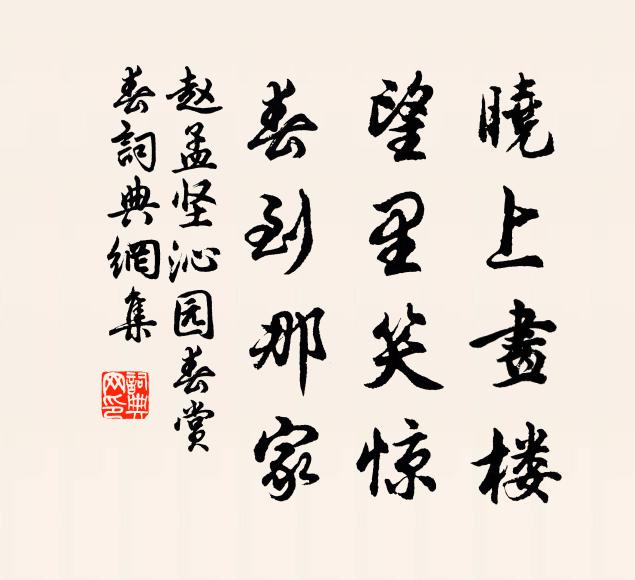 曉上畫楼
望里笑惊
春到那家
赵孟坚沁园春赏
春詞典網集
詞典网印